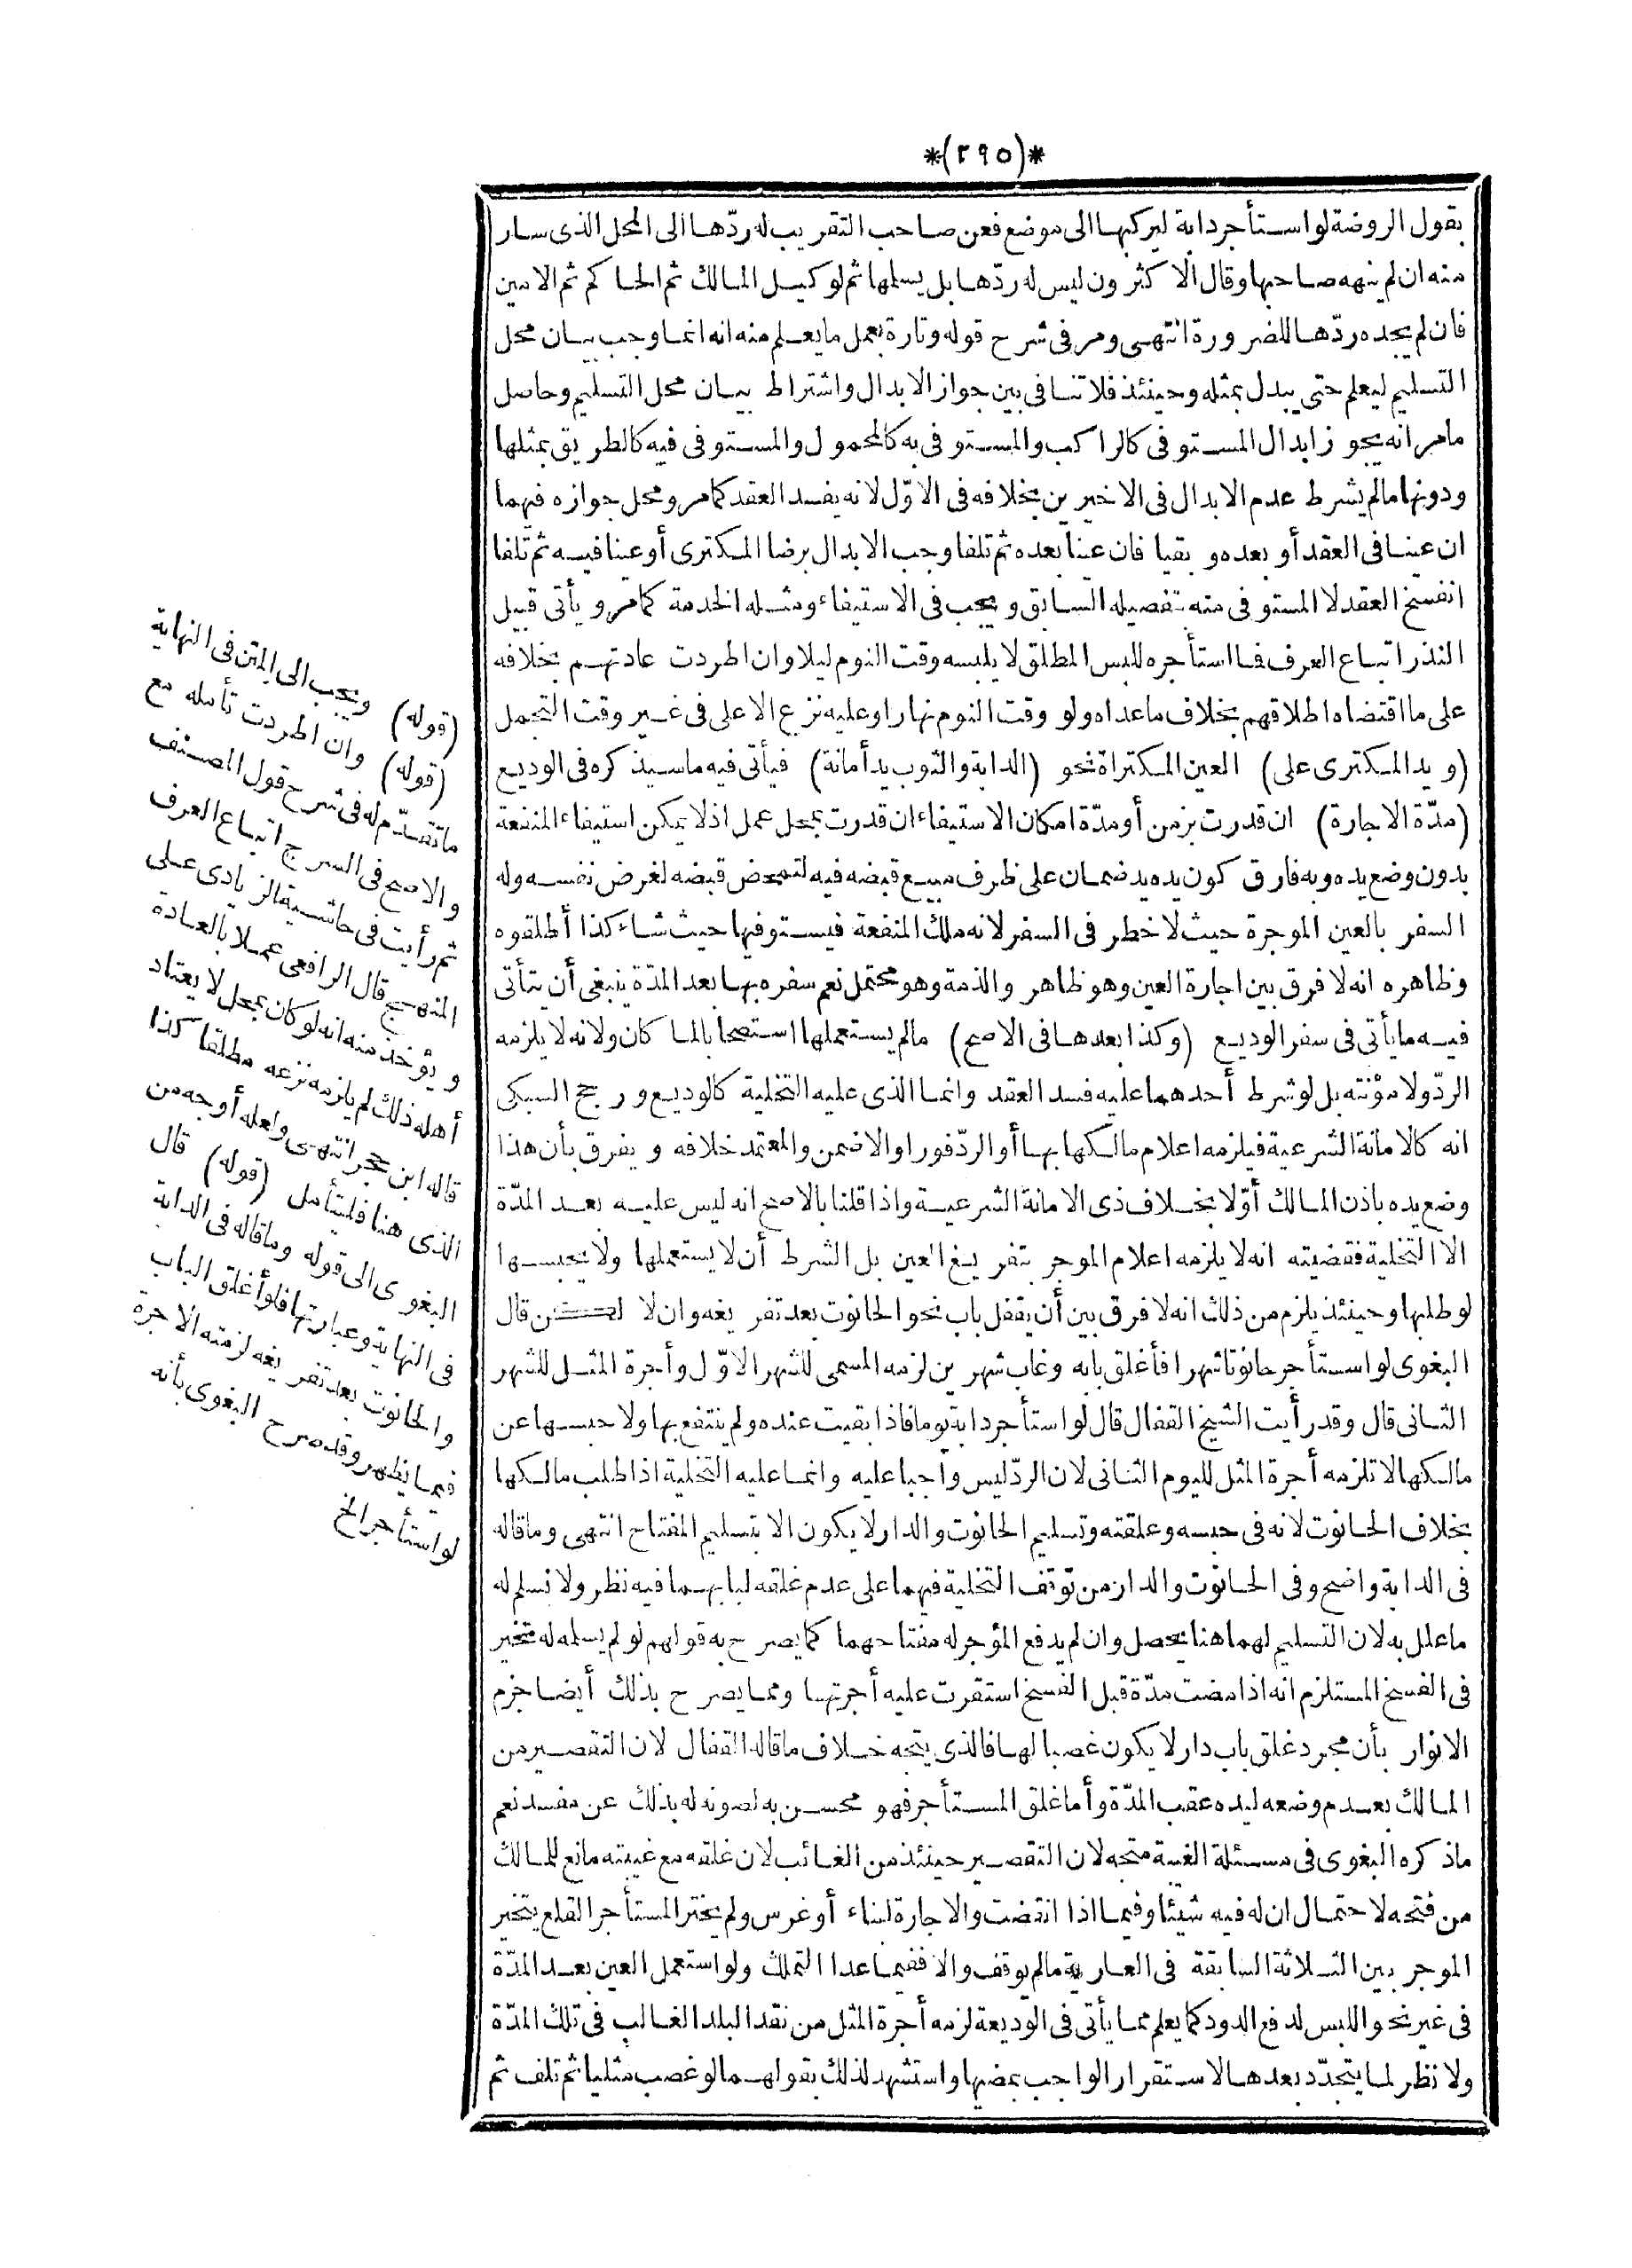 *(٢٩٥)*
بقول الروضة لو استأجر دابة ليركبها الى موضع فعن صاحب التقريب له ردّها الى المحل الذى سار
منه ان لم ينهه صاحبها وقال الاكثرون ليس له ردّها بل يسلمها ثم لوكيل المالك ثم الحاكم ثم الامين
فان لم يجده ردّها للضرورة انتهى ومر فى شرح قوله وتارة بعمل ما يعلم منه انه انما وجب بيان محل
التسليم ليعلم حتى يبدل بمثله وحينئذ فلا تنافى بين جواز الابدال واشتراط بيان محل التسليم وحاصل
ما مر انه يجوز ابدال المستوفى كالراكب والمستوفى به كالمحمول والمستوفى فيه كالطريق بمثلها
ودونها ما لم يشرط عدم الابدال فى الاخيرين بخلافه فى الاوّل لانه يفسد العقد كما مر ومحل جوازه فيهما
ان عينا فى العقد أو بعده وبقيا فان عينا بعده ثم تلفا وجب الابدال برضا المكترى أو عينا فيه ثم تلفا
انفسخ العقد لا المستوفى منه بتفصيله السابق ويجب فى الاستيفاء ومثله الخدمة كما مر ويأتى قبيل
النذر اتباع العرف فما استأجره للبس المطلق لا يلبسه وقت النوم ليلا وان اطردت عادتهم بخلافه
على ما اقتضاه اطلاقهم بخلاف ما عداه ولو وقت النوم نهارا وعليه نزع الاعلى فى غير وقت التجمل
(ويد المكترى على) العين المكتراة نحو (الدابة والثوب يد أمانة) فيأتى فيه ما سيذكره فى الوديع
(مدّة الاجارة) ان قدرت بزمن أو مدّة امكان الاستيفاء ان قدرت بمحل عمل اذ لا يمكن استيفاء المنفعة
بدون وضع يده وبه فارق كون يده يد ضمان على ظرف مبيع قبضه فيه لتمحض قبضه لغرض نفسه وله
السفر بالعين الموجرة حيث لا خطر فى السفر لانه ملك المنفعة فيستوفيها حيث شاء كذا أطلقوه
وظاهره انه لا فرق بين اجارة العين وهو ظاهر والذمة وهو محتمل نعم سفره بها بعد المدّة ينبغى أن يتأتى
فيه ما يأتى فى سفر الوديع (وكذا بعدها فى الاصح) ما لم يستعملها استصحابا لما كان ولانه لا يلزمه
الردّ ولا مؤنته بل لو شرط أحدهما عليه فسد العقد وانما الذى عليه التخلية كالوديع ورجح السبكى
انه كالامانة الشرعية فيلزمه اعلام مالكها بها أو الردّ فورا والا ضمن والمعتمد خلافه ويفرق بأن هذا
وضع يده باذن المالك أوّلا بخلاف ذى الامانة الشرعية واذا قلنا بالاصح انه ليس عليه بعد المدّة
الا التخلية فقضيته انه لا يلزمه اعلام الموجر بتفريغ العين بل الشرط أن لا يستعملها ولا يحبسها
لو طلبها وحينئذ يلزم من ذلك انه لا فرق بين أن يقفل باب نحو الحانوت بعد تفريغه وان لا لكن قال
البغوى لو استأجر حانوتا شهرا فأغلق بابه وغاب شهرين لزمه المسمى للشهر الاوّل وأجرة المثل للشهر
الثانى قال وقد رأيت الشيخ القفال قال لو استأجر دابة يوما فاذا بقيت عنده ولم ينتفع بها ولا حبسها عن
مالكها لا تلزمه أجرة المثل لليوم الثانى لان الردّ ليس واجبا عليه وانما عليه التخلية اذا طلب مالكها
بخلاف الحانوت لانه فى حبسه وعلقته وتسليم الحانوت والدار لا يكون الا بتسليم المفتاح انتهى وما قاله
فى الدابة واضح وفى الحانوت والدار من توقف التخلية فيهما على عدم غلقه لبابهما فيه نظر ولا نسلم له
ما علل به لان التسليم لهما هنا يحصل وان لم يدفع المؤجر له مفتاحهما كما يصرح به قولهم لو لم يسلمه له تخير
فى الفسخ المستلزم انه اذا مضت مدّة قبل الفسخ استقرت عليه أجرتها ومما يصرح بذلك أيضا جزم
الانوار بأن مجرد غلق باب دار لا يكون غصبا لها فالذى يتجه خلاف ما قاله القفال لان التقصير من
المالك بعدم وضعه ليده عقب المدّة وأما غلق المستأجر فهو محسن به لصونه له بذلك عن مفسد نعم
ما ذكره البغوى فى مسئلة الغيبة متجه لان التقصير حينئذ من الغائب لان غلقه مع غيبته مانع للمالك
من فتحه لاحتمال ان له فيه شيئا وفيما اذا انقضت والاجارة لبناء أو غرس ولم يختر المستأجر القلع يتخير
الموجر بين الثلاثة السابقة فى العارية ما لم يوقف والا ففيما عدا التملك ولو استعمل العين بعد المدّة
فى غير نحو اللبس لدفع الدود كما يعلم مما يأتى فى الوديعة لزمه أجرة المثل من نقد البلد الغالب فى تلك المدّة
ولا نظر لما يتجدّد بعدها لاستقرار الواجب بمضيها واستشهد لذلك بقولهم ما لو غصب مثليا ثم تلف ثم
(قوله) ويجب الى المتن فى النهاية
(قوله) وان اطردت تأمله مع
ما تقدّم له فى شرح قول المصنف
والاصح فى السرج اتباع العرف
ثم رأيت فى حاشية الزيادى على
المنهج قال الرافعى عملا بالعادة
ويؤخذ منه انه لو كان بمحل لا يعتاد
أهله ذلك لم يلزمه نزعه مطلقا كذا
قاله ابن حجر انتهى ولعله أوجه من
الذى هنا فليتأمل (قوله) قال
البغوى الى قوله وما قاله فى الدابة
فى النهاية وعبارتها فلو أغلق الباب
والحانوت بعد تفريغه لزمته الاجرة
فيما يظهر وقد صرح البغوى بأنه
لو استأجر الخ